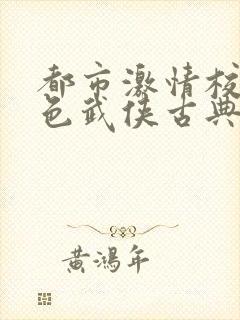 都市激情校
色武侠古典
黄鸿年